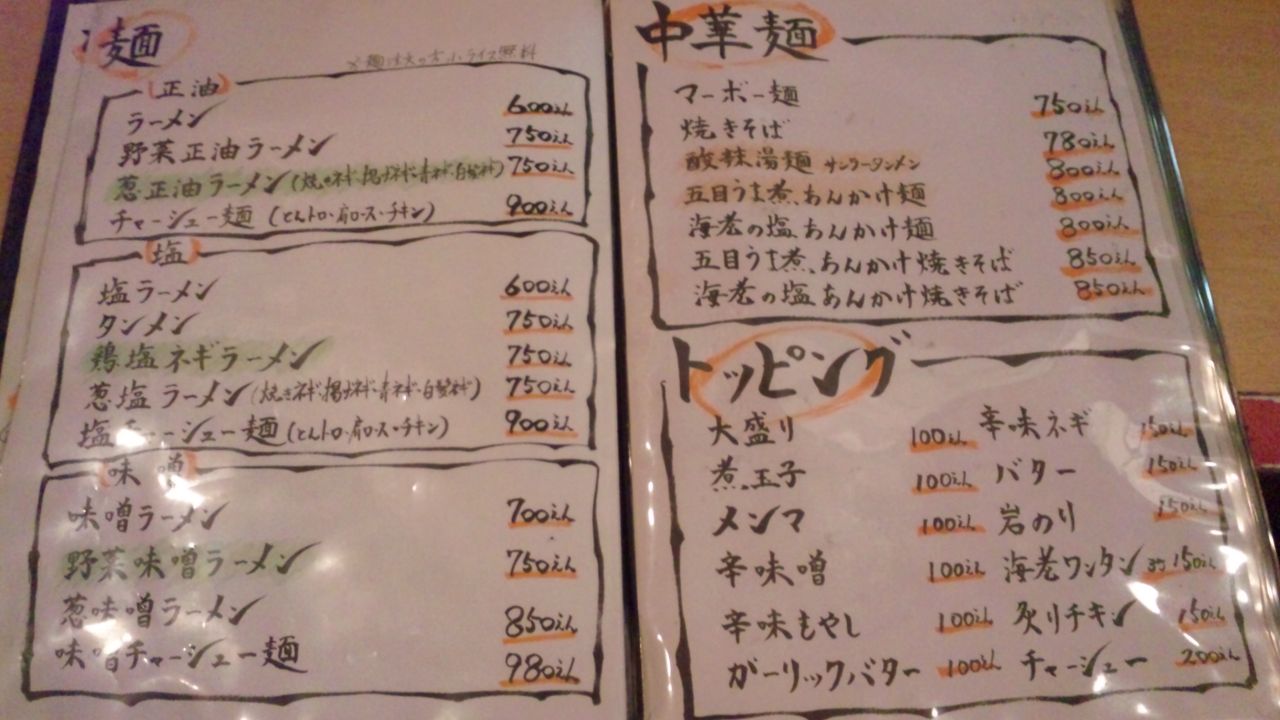 麺
※麺注文の方小ライス無料
正油
ラーメン 600えん
野菜正油ラーメン 750えん
葱正油ラーメン(焼きネギ・揚げネギ・青ネギ・白髪ネギ) 750えん
チャーシュー麺 (とんトロ・肩ロース・チキン) 900えん
塩
塩ラーメン 600えん
タンメン 750えん
鶏塩ネギラーメン 750えん
葱塩ラーメン(焼きネギ・揚げネギ・青ネギ・白髪ネギ) 750えん
塩チャーシュー麺(とんトロ・肩ロース・チキン) 900えん
味噌
味噌ラーメン 700えん
野菜味噌ラーメン 750えん
葱味噌ラーメン 850えん
味噌チャーシュー麺 980えん
中華麺
マーボー麺 750えん
焼きそば 780えん
酸辣湯麺 サンラータンメン 800えん
五目うま煮、あんかけ麺 800えん
海老の塩あんかけ麺 800えん
五目うま煮、あんかけ焼きそば 850えん
海老の塩あんかけ焼きそば 850えん
トッピング
大盛り 100えん 辛味ネギ 150えん
煮玉子 100えん バター 150えん
メンマ 100えん 岩のり 150えん
辛味噌 100えん 海老ワンタン 150えん
辛味もやし 100えん 炙りチキン 150えん
ガーリックバター 100えん チャーシュー 200えん